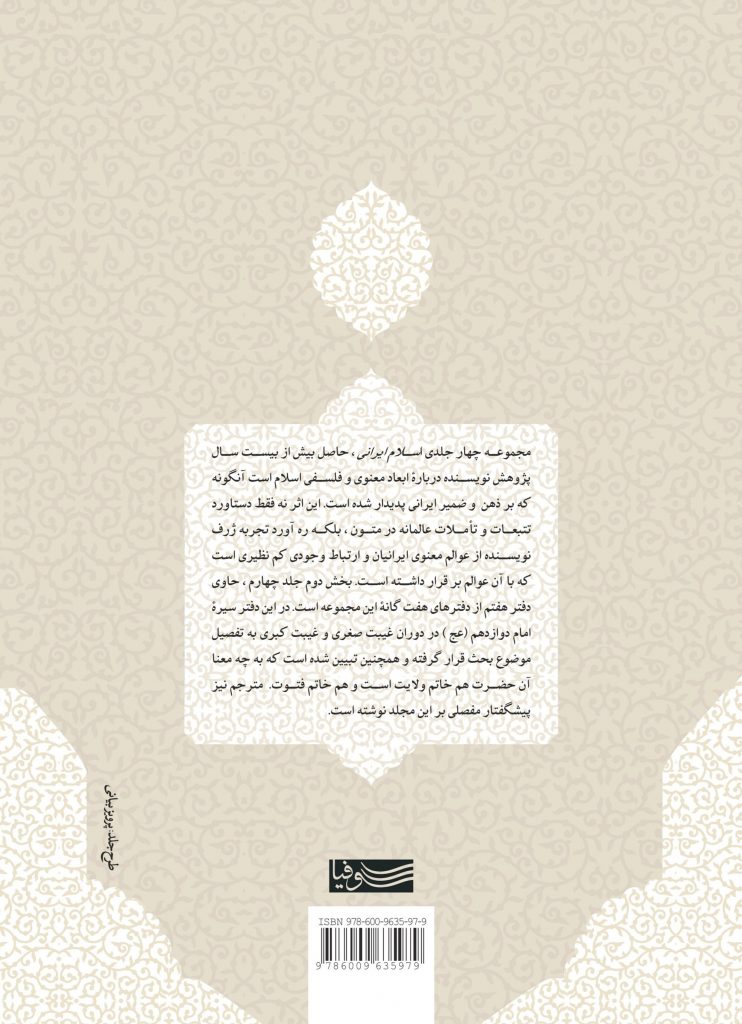 مجموعه چهار جلدی اسلام ایرانی، حاصل بیش از بیست سال
پژوهش نویسنده دربارهٔ ابعاد معنوی و فلسفی اسلام است آنگونه
که بر ذهن و ضمیر ایرانی پدیدار شده است. این اثر نه فقط دستاورد
تتبعات و تأملات عالمانه در متون، بلکه ره آورد تجربه ژرف
نویسنده از عوالم معنوی ایرانیان و ارتباط وجودی کم نظیری است
که با آن عوالم بر قرار داشته است. بخش دوم جلد چهارم، حاوی
دفتر هفتم از دفترهای هفت گانهٔ این مجموعه است. در این دفتر سیرهٔ
امام دوازدهم (عج) در دوران غیبت صغری و غیبت کبری به تفصیل
موضوع بحث قرار گرفته و همچنین تبیین شده است که به چه معنا
آن حضرت هم خاتم ولایت است و هم خاتم فتوت. مترجم نیز
پیشگفتار مفصلی بر این مجلد نوشته است.
طرح جلد: پرویز بیانی
سوفیا
ISBN 978-600-9635-97-9
9 786009 635979